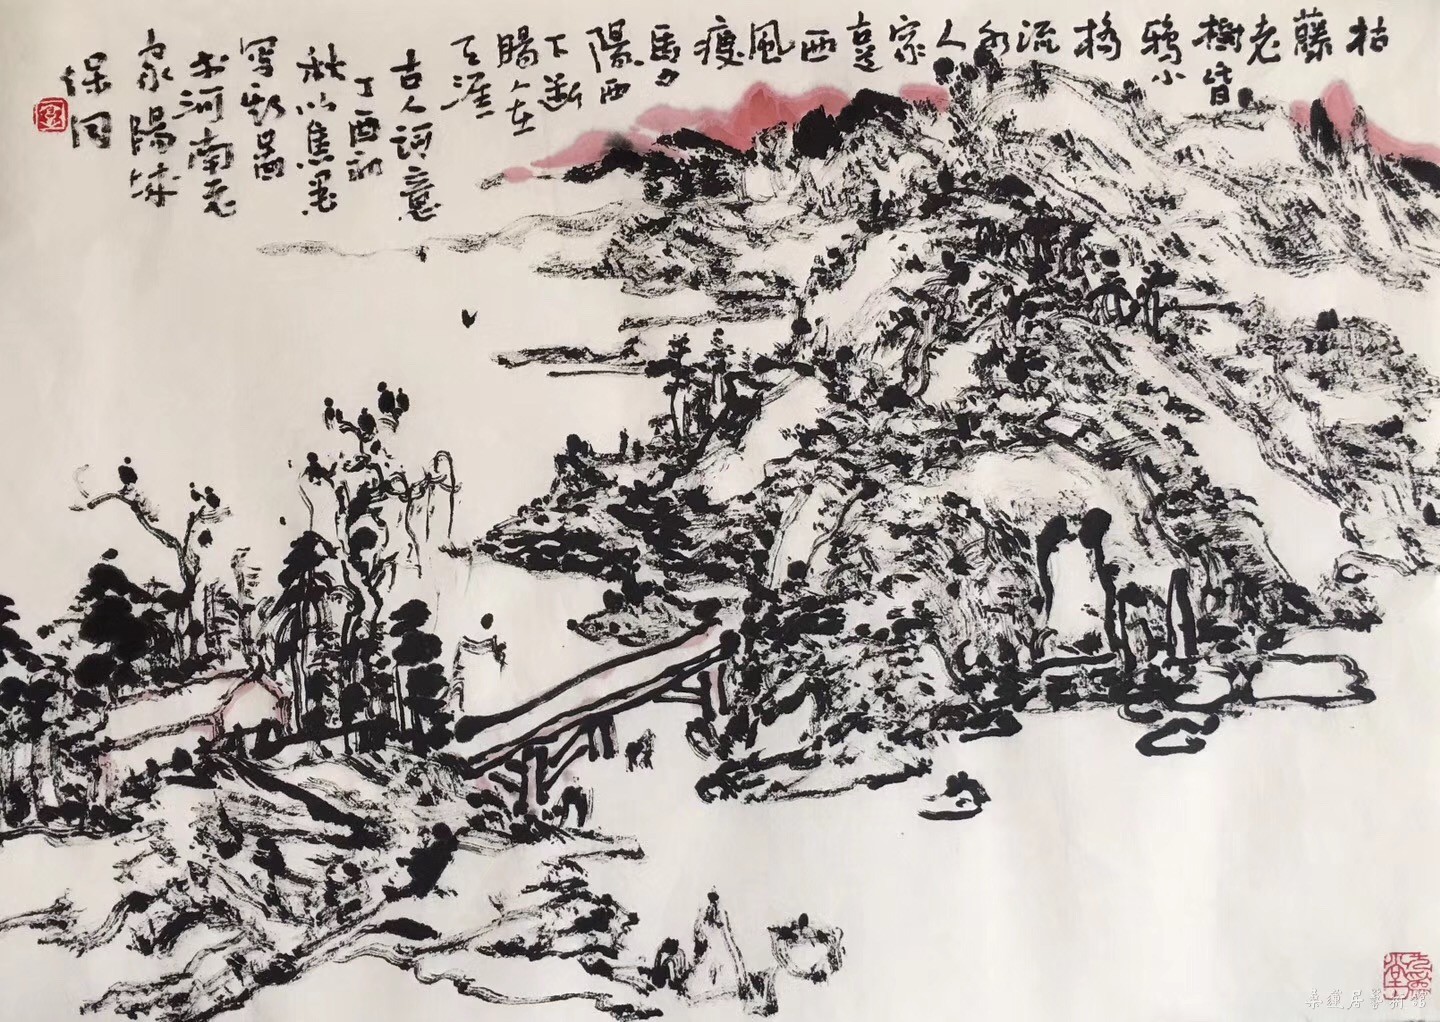 枯
藤
老
樹昏
鴉小
橋
流
水
人
家
古道
西
風
瘦
馬夕
陽西
下斷
腸在
天涯
古人詞意
丁酉初
秋以焦墨
寫圖
於河南老
家陽城
保同
桑蓮居藝術館